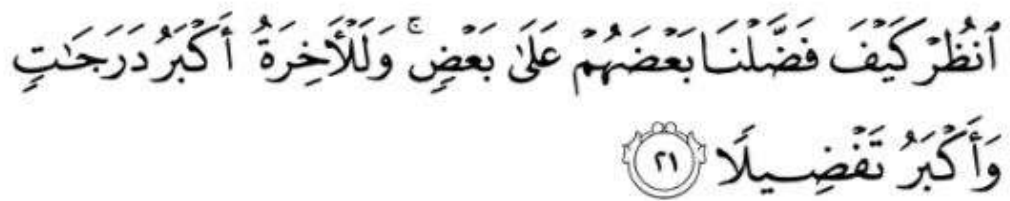 ٱنظُرۡ كَيۡفَ فَضَّلۡنَا بَعۡضَهُمۡ عَلَىٰ بَعۡضٖۚ وَلَلۡأٓخِرَةُ أَكۡبَرُ دَرَجَٰتٖ
وَأَكۡبَرُ تَفۡضِيلٗا ٢١